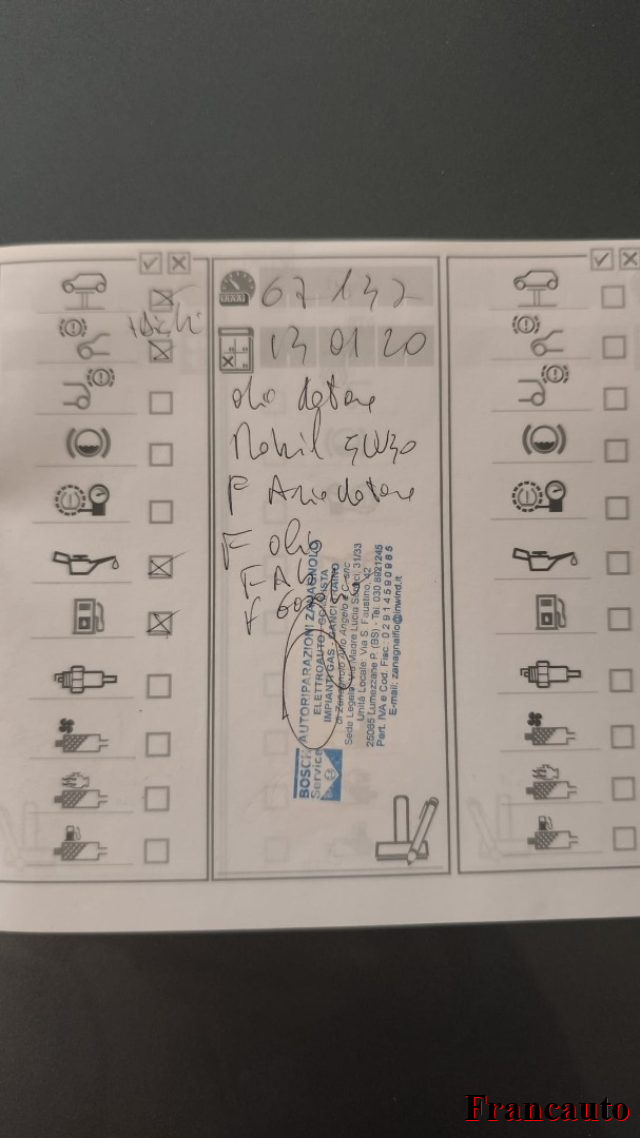 67 137
13 01 20
olio
Mobil 5W30
F
F olio
F
F
BOSCH
Service
AUTORIPARAZIONI ZANAGNOLO
ELETTRAUTO - GOMMISTA
IMPIANTI GAS - GANCI TRAINO
di Zanagnolo Angelo e C. snc
Sede Legale: Via Madre Lucia 31/33
Unità Locale: Via S. Faustino, 42
25065 Lumezzane P. (BS) - Tel. 030 8921245
Part. IVA e Cod. Fisc.: 02914590985
E-mail: zanagnolfio@inwind.it
Francauto